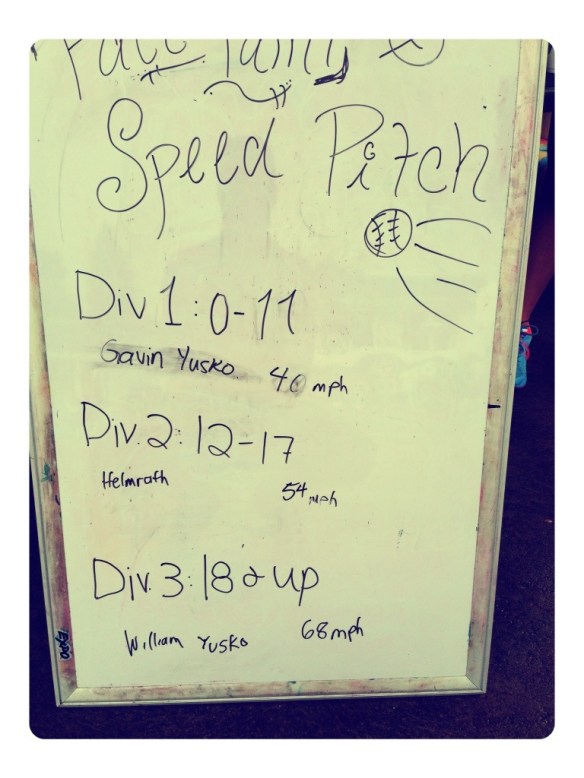 Speed Pitch
Div 1: 0-11
Gavin Yusko 40 mph
Div. 2: 12-17
Helmrath 54 mph
Div. 3: 18 & up
William Yusko 68 mph
EXPO